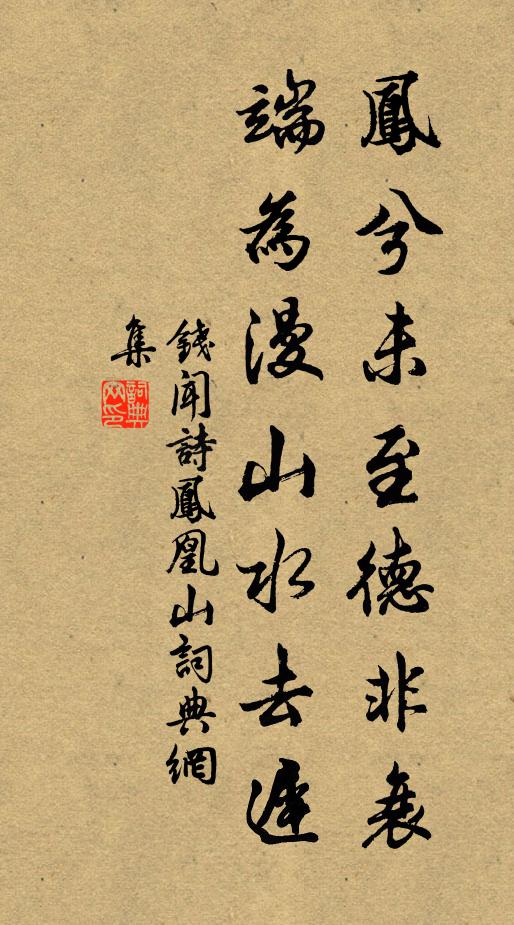 鳳兮未至德非衰
端為漫山水去遲
錢聞詩鳳凰山詞典網
集
詞典網印